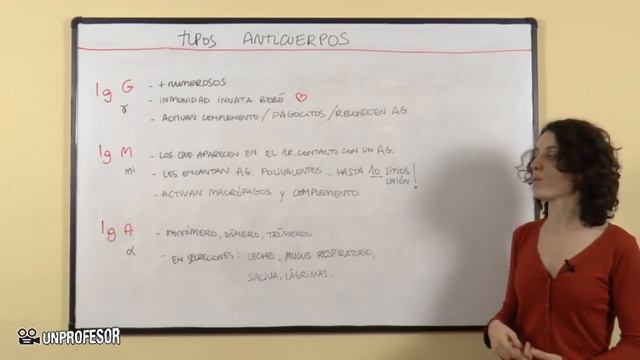 TIPOS ANTICUERPOS
Ig G - + NUMEROSOS
γ - INMUNIDAD INNATA BEBÉ ♡
- ACTIVAN COMPLEMENTO / FAGOCITOS / RECONOCEN AG
Ig M - LOS QUE APARECEN EN EL 1R. CONTACTO CON UN AG.
mi - LES ENCANTAN AG. POLIVALENTES... HASTA 10 SITIOS UNIÓN!
- ACTIVAN MACRÓFAGOS Y COMPLEMENTO
Ig A - MONÓMERO, DÍMERO, TRÍMERO
α - EN SECRECIONES: LECHE, MUCUS RESPIRATORIO,
SALIVA, LÁGRIMAS.
UNPROFESOR